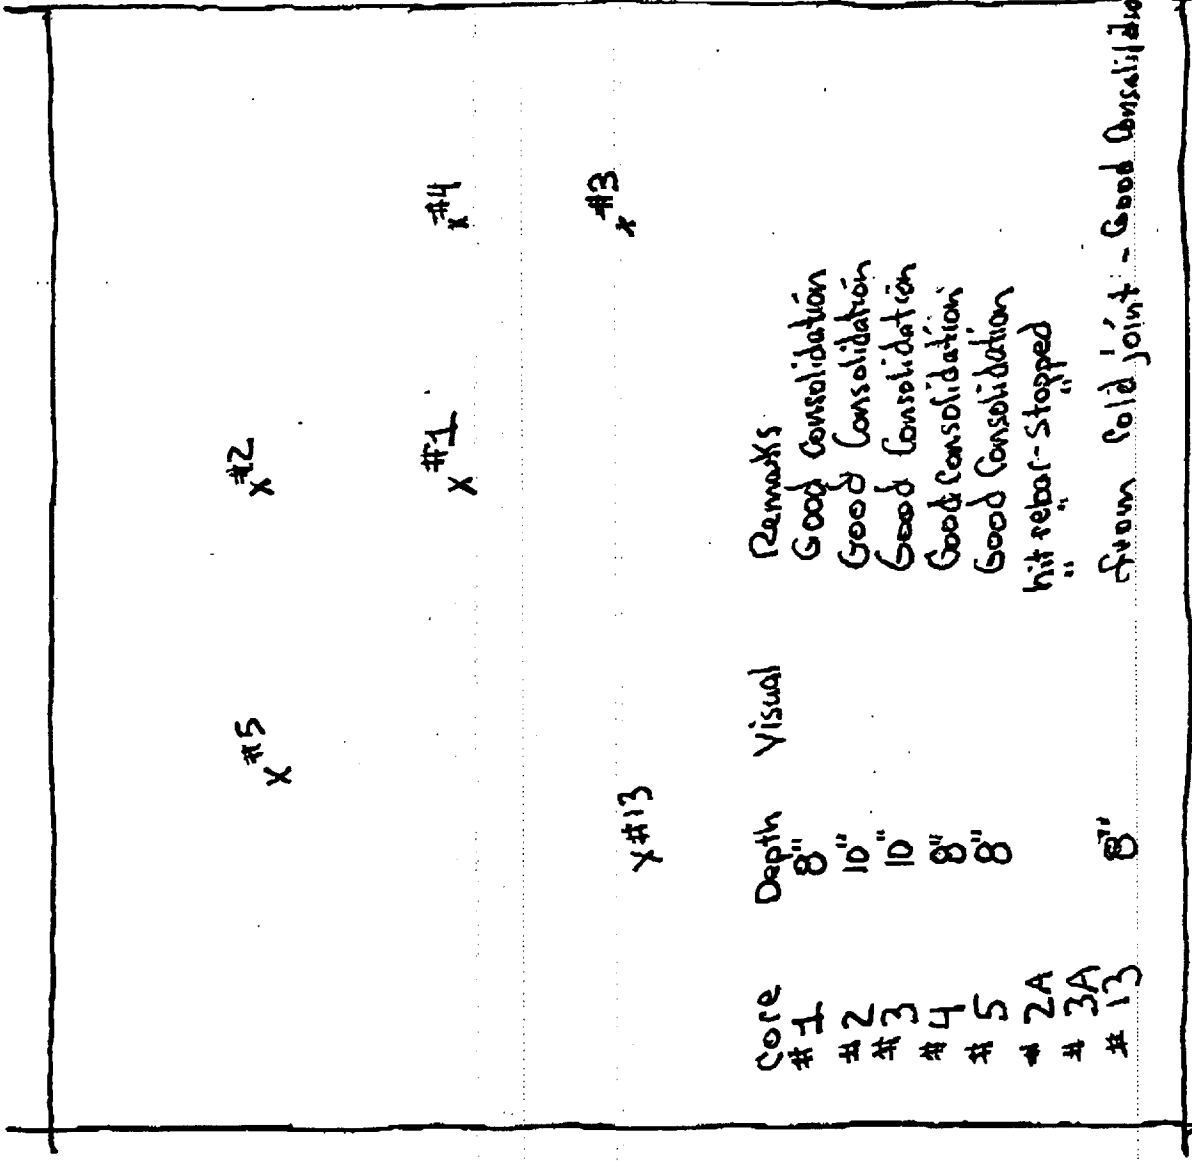 x#5 x#2
x#1 x#4
x#13 x#3
Core Depth Visual Remarks
#1 8" Good Consolidation
#2 10" Good Consolidation
#3 10" Good Consolidation
#4 8" Good Consolidation
#5 8" Good Consolidation
#2A hit rebar-Stopped
#3A " " "
#13 8" from Cold joint - Good